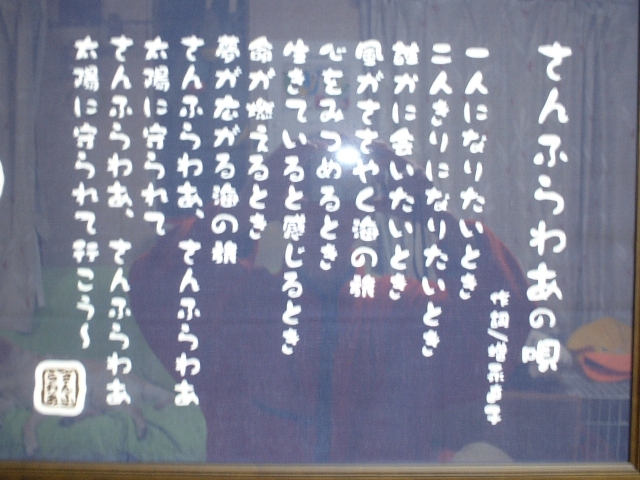 さんふらわあの唄
作詞/増永直子
一人になりたいとき
二人きりになりたいとき
誰かに会いたいとき
風がささやく海の旅
心をみつめるとき
生きていると感じるとき
命が燃えるとき
夢が広がる海の旅
さんふらわあ、さんふらわあ
太陽に守られて
さんふらわあ、さんふらわあ
太陽に守られて行こう〜
さんふらわあ